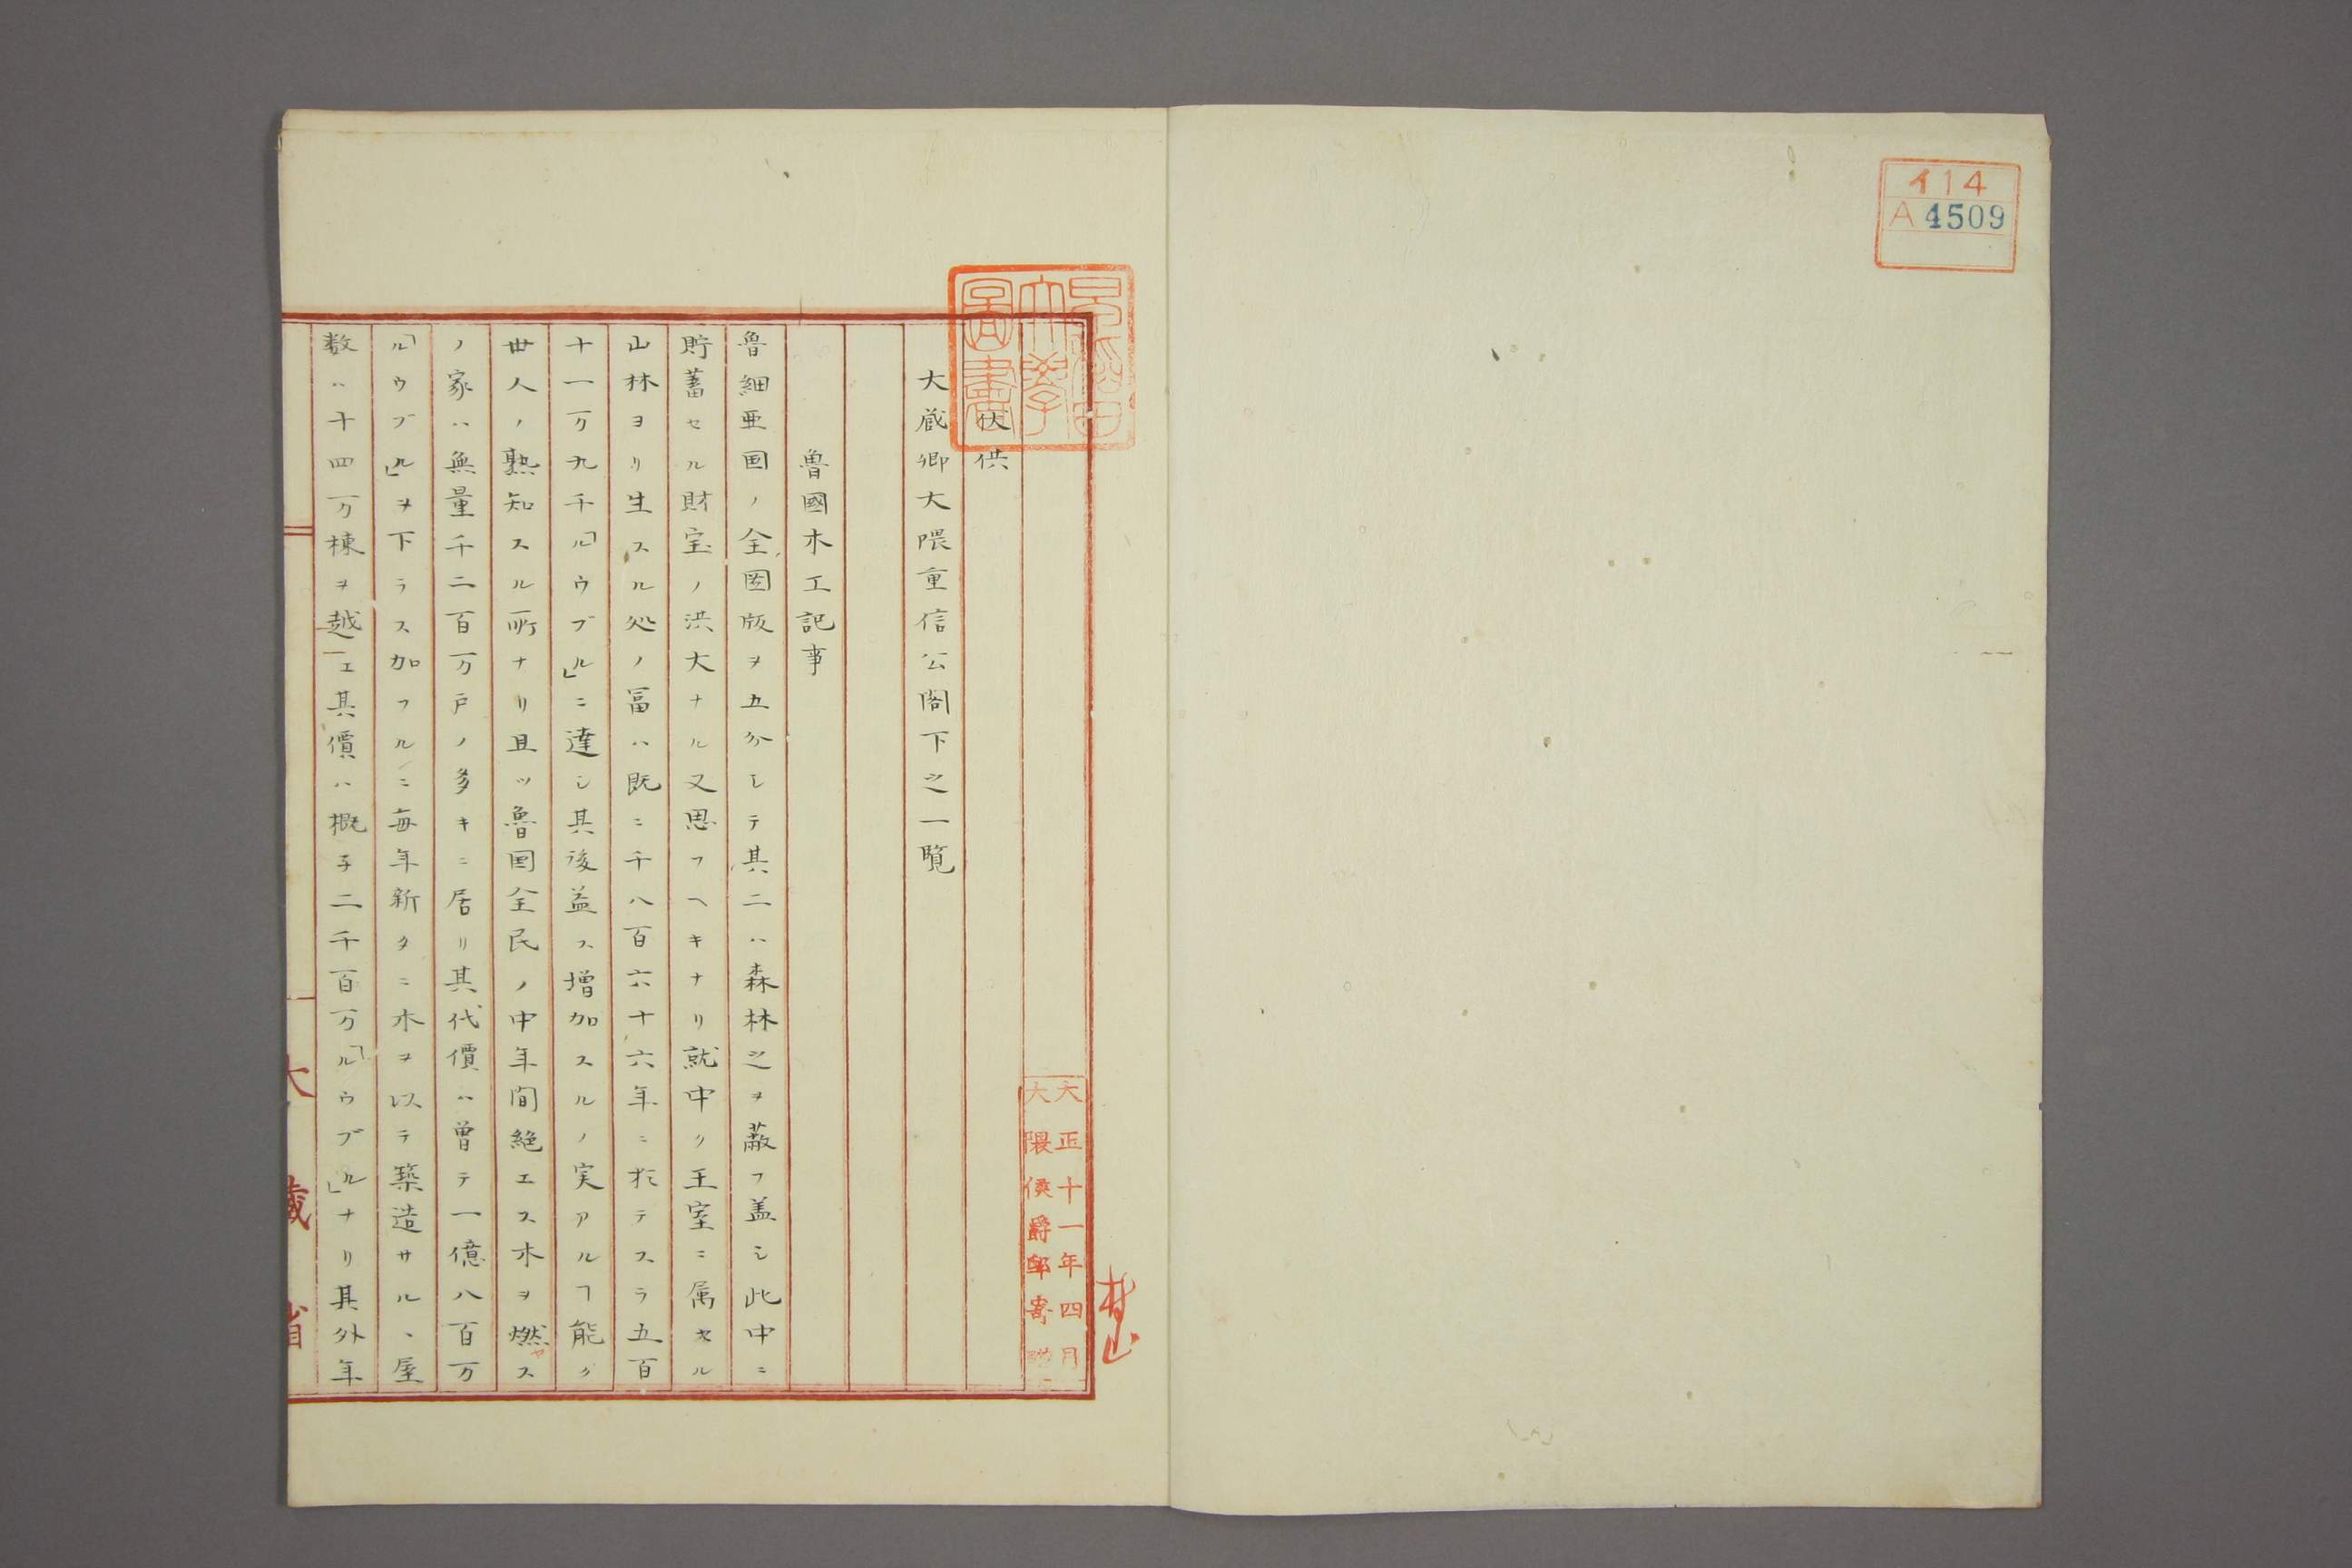 イ14
A 4509
早稲田
大學
圖書
大正十一年四月
大隈侯爵邸寄贈
伏供
大蔵卿大隈重信公閣下之一覧
魯國木工記事
魯細亜国ノ全国版ヲ五分シテ其二ハ森林之ヲ蔽フ盖シ此中ニ
貯蓄セル財宝ノ洪大ナル又思フヘキナリ就中ク王室ニ属セル
山林ヨリ生スル処ノ冨ハ既ニ千八百六十六年ニ於テスラ五百
十一万九千「ルウブル」ニ達シ其後益ス増加スルノ実アルヿ能ク
世人ノ熟知スル所ナリ且ツ魯国全民ノ中年間絶エス木ヲ燃ヤス
ノ家ハ無量千二百万戸ノ多キニ居リ其代價ハ曽テ一億八百万
「ルウブル」ヲ下ラス加フルニ毎年新タニ木ヲ以テ築造サル、屋
数ハ十四万棟ヲ越エ其價ハ概子二千百万「ルウブル」ナリ其外年
大藏省